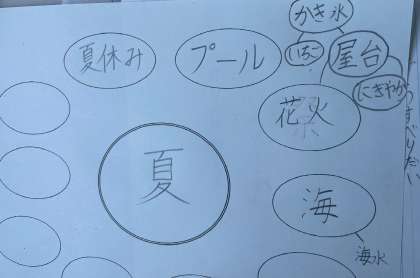 かき氷
いちご
屋台
にぎやか
夏休み
プール
花火
夏
海
海水